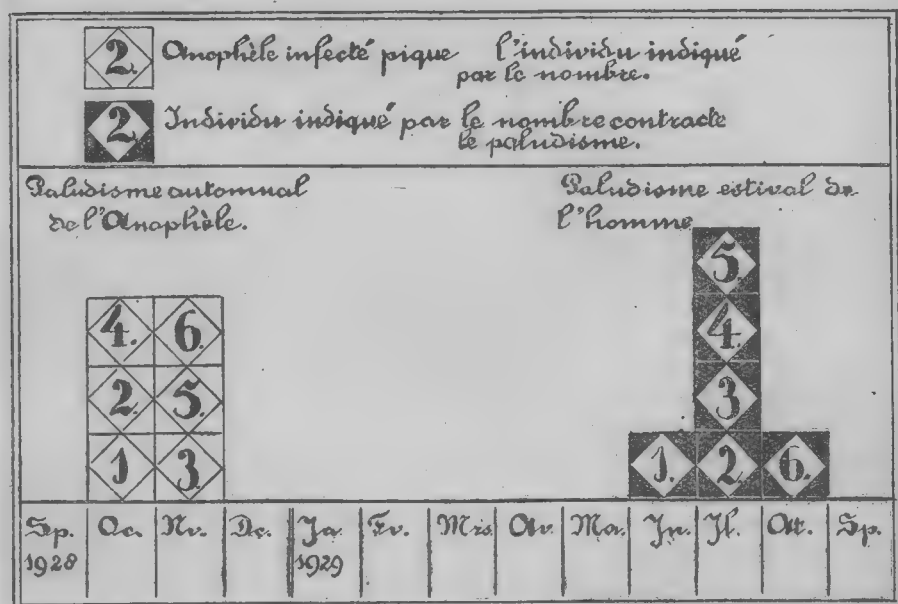 2. Anophèle infecté pique l'individu indiqué
par le nombre.
2 Individu indiqué par le nombre contracte
le paludisme.
Paludisme automnal
de l'Anophèle.
Paludisme estival de
l'homme
5.
4. 6. 4.
2. 5. 3
1 3. 1. 2 6.
Sp. Oc. Nv. De. Ja Fv. Mrs Av. Ma. Jn. Jl. Ot. Sp.
1928 1929